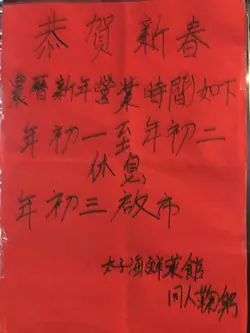 恭賀新春
農曆新年營業時間如下
年初一至年初二
休息
年初三啟市
太子海鮮菜館
同人鞠躬